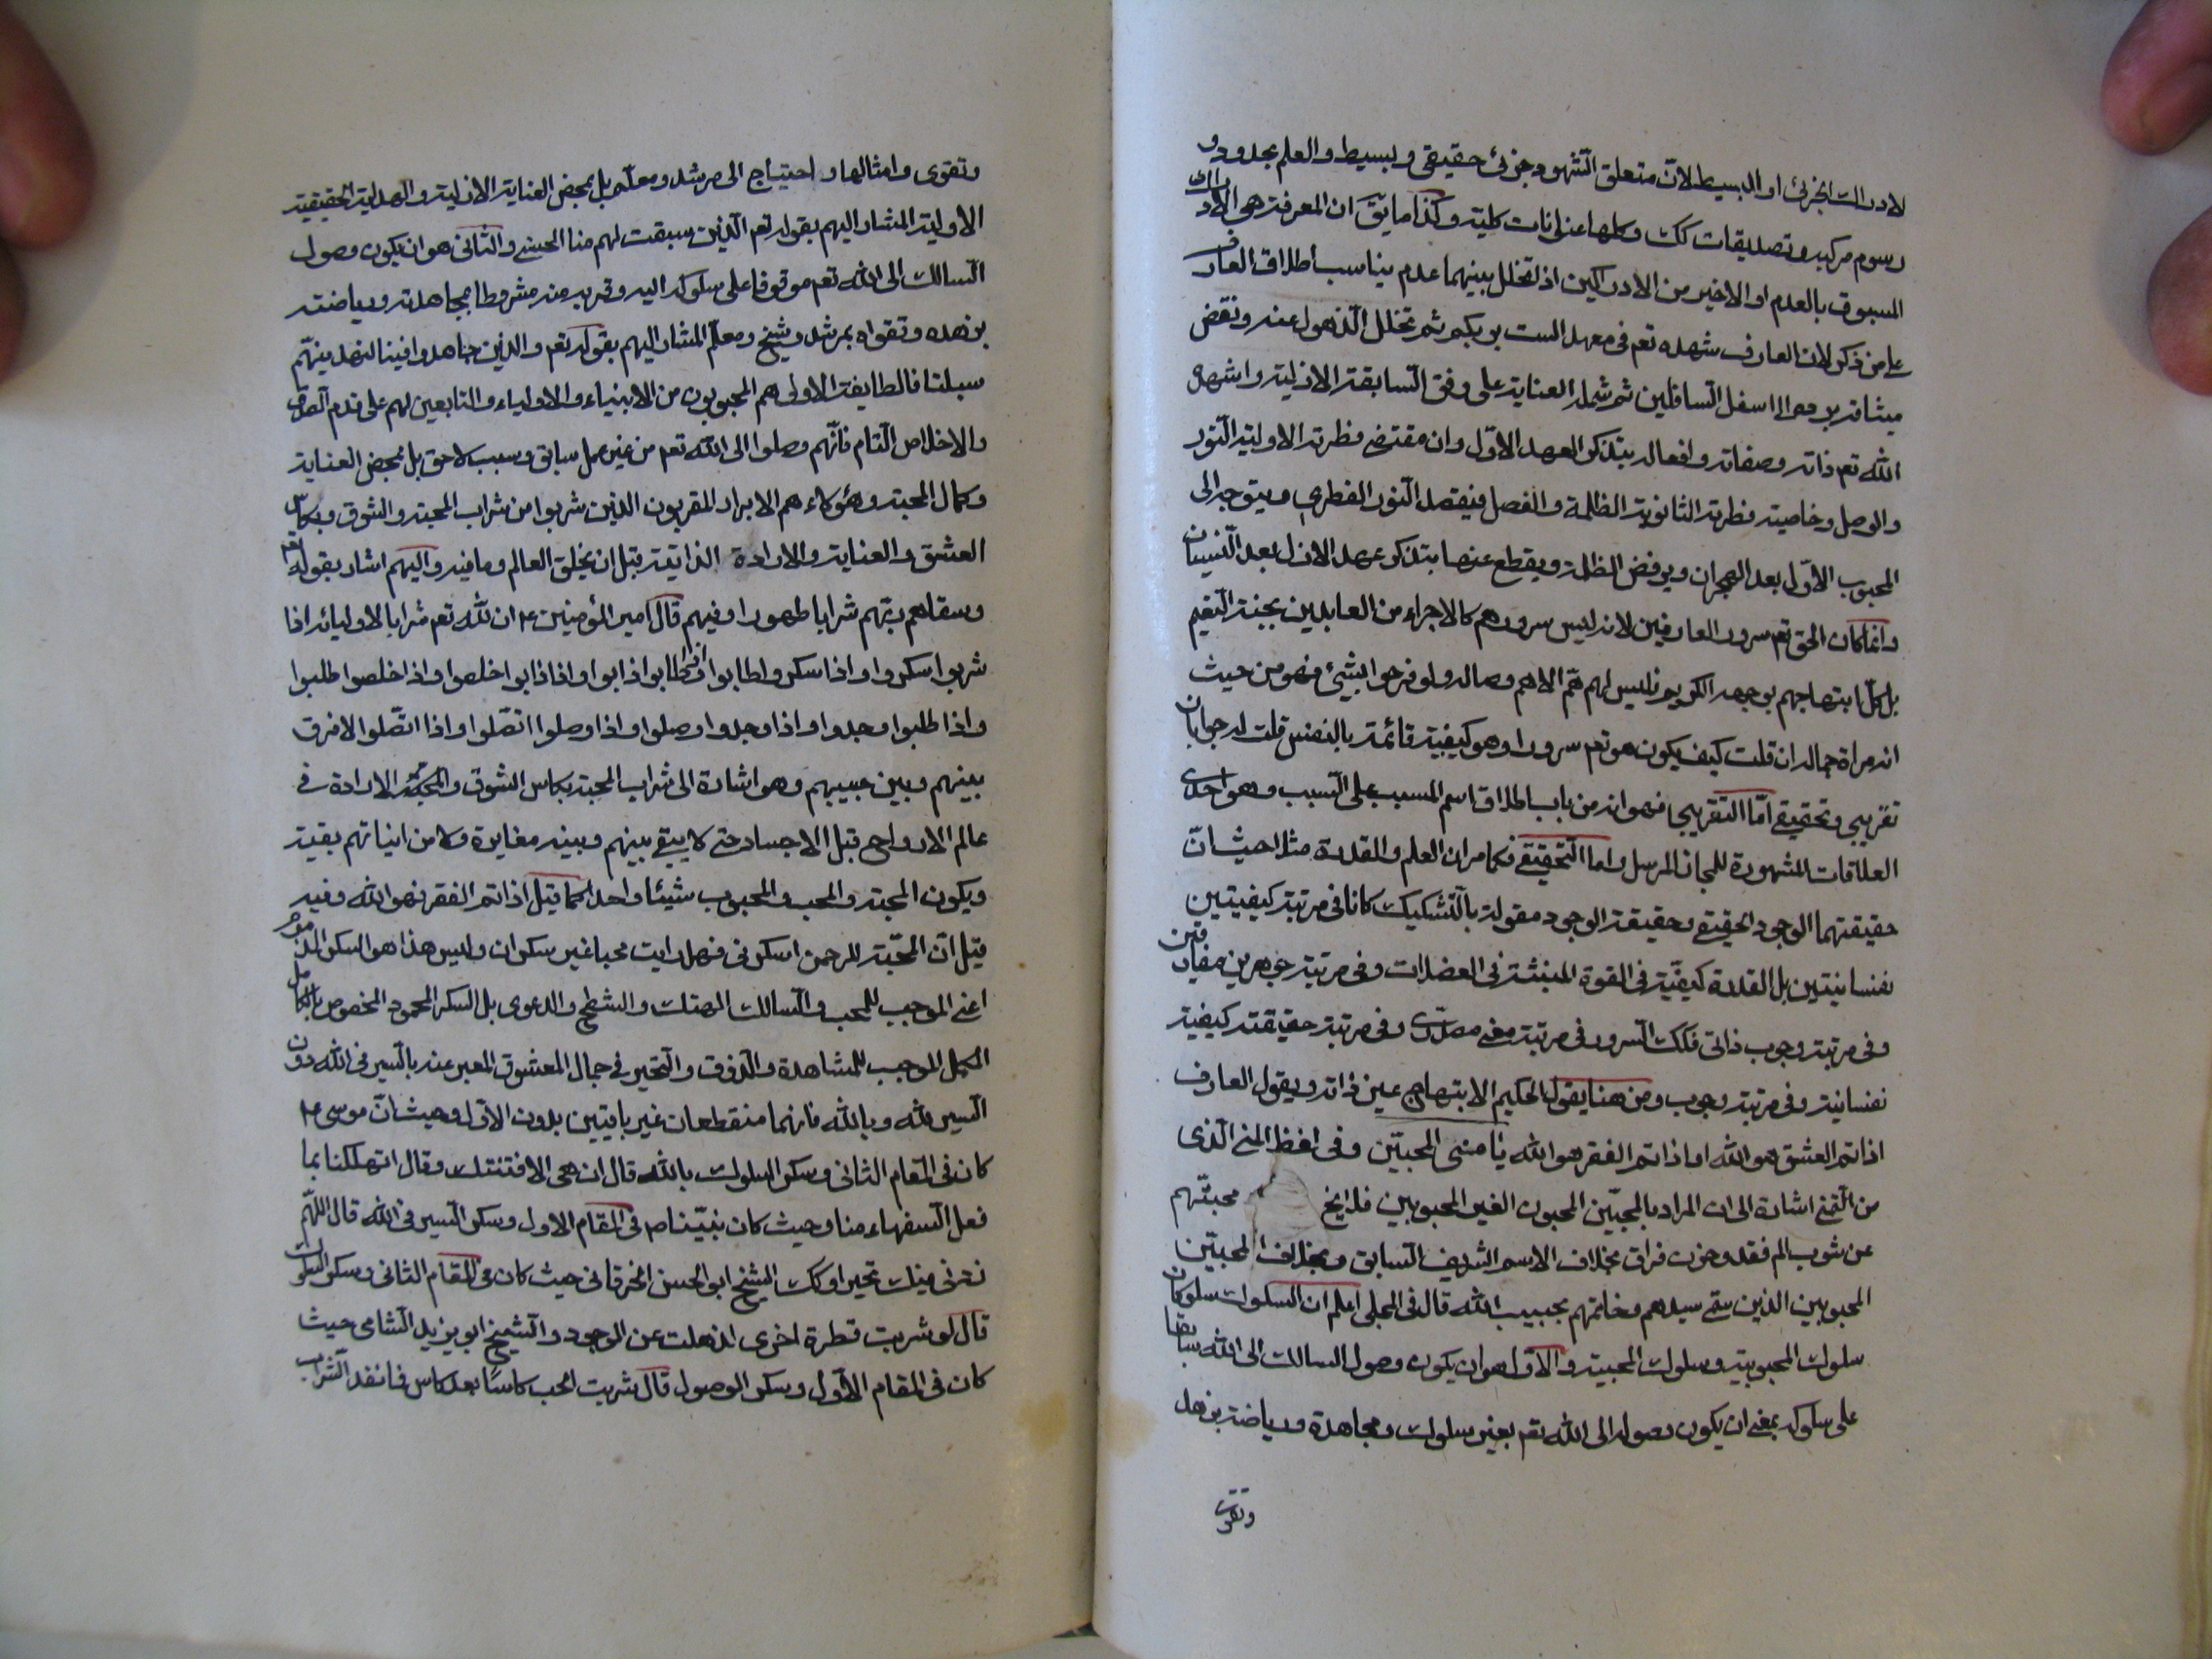 لادراك الجزئ او البسيط لانّ متعلق الشهود جزئ حقيقي وبسيط والعلم بحدود و
رسوم مركبه وتصديقات كك وكلها عنوانات كلية وكذا ما يقّ ان المعرفة هى الادراك
المسبوق بالعدم او الاخير من الادراكين اذ تخلل بينهما عدم يناسب اطلاق العارف
على من ذكر لان العارف شهده تعم فى معهد الست بربكم ثم تخلل الذهول عنه ونقض
ميثاقه برده الى اسفل السافلين ثم شمله العناية على وفق السابقة الازلية واشهده
الله تعم ذاته وصفاته وافعاله بتذكر العهد الاوّل وان مقتضى فطرته الاولية النور
والوصل وخاصية فطرته الثانوية الظلمة والفصل فيقصد النور الفطري ويتوجه الى
المحبوب الاوّل بعد الهجران ويرفض الظلمة ويقطع عنها بتذكر عهد الازل بعد النسيان
وانما كان الحق تعم سرور العارفين لانه ليس سرورهم كالاجراء من العابدين بجنة النعيم
بل كلّ ابتهاجهم بوجهه الكريم فليس لهم همّ الا هم وصاله ولو فرحوا بشيئ فهو من حيث
انه مراة جماله ان قلت كيف يكون هو تعم سرورا وهو كيفية قائمة بالنفس قلت له جوابان
تقريبي وتحقيقي امّا التقريبي فهو انه من باب اطلاق اسم المسبب على السبب وهو احدى
العلاقات المشهورة للمجاز المرسل واما التحقيقي فكما مر ان العلم والقدرة مثلا حيث انّ
حقيقتهما الوجود الحقيقي وحقيقة الوجود مقولة بالتشكيك كانا فى مرتبة كيفيتين
نفسانيتين بل القدرة كيفيّة فى القوة المنبثة فى العضلات وفى مرتبة جوهرين مفارقين
وفى مرتبة وجوب ذاتى فكك السرور فى مرتبة معنى مصدرى وفى مرتبة حقيقته كيفية
نفسانية وفى مرتبة وجوب ومن هنا يقول الحكيم الابتهاج عين ذاته ويقول العارف
اذا تم العشق هو الله او اذا تم الفقر هو الله يا منى المحبّين وفى لفظ المنى الذى
من التمنى اشارة الى ان المراد بالمحبّين المحبون الغير المحبوبين فلا يخ محبتّهم
عن شوب الم فقد وحزن فراق بخلاف الاسم الشريف السابق وبخلاف المحبيّن
المحبوبين الذين سمى سيدهم وخاتمهم بحبيب الله قال فى المجلى اعلم ان السلوك سلوكان
سلوك المحبوبية وسلوك المحبية والاوّل هو ان يكون وصول السالك الى الله سابقا
على سلوكه بمعنى ان يكون وصوله الى الله تعم بغير سلوك ومجاهدة ورياضة بزهد
وتقوى
وتقوى وامثالها واحتياج الى مرشد ومعلّم بل بمحض العناية الازلية والهداية الحقيقية
الاولية المشار اليهم بقوله تعم الذين سبقت لهم منا الحسنى والثانى هو ان يكون وصول
السالك الى الله تعم موقوفا على سلوكه اليه وقربه منه مشروطا بمجاهدته ورياضته
بزهده وتقواه بمرشد وشيخ ومعلّم المشار اليهم بقوله تعم والذين جاهدوا فينا لنهدينهّم
سبلنا فالطايفة الاولى هم المحبوبون من الانبياء والاولياء والتابعين لهم على قدم الصدق
والاخلاص التام فانّهم وصلوا الى الله تعم من غير عمل سابق وسبب لاحق بل بمحض العناية
وكمال المحبة وهؤلاء هم الابرار المقربون الذين شربوا من شراب المحبة والشوق وبكاس
العشق والعناية والارادة الذاتية قبل ان يخلق العالم وما فيه واليهم اشار بقوله تعم
وسقاهم ربّهم شرابا طهورا وفيهم قال امير المؤمنين ع ان لله تعم شرابا لاوليائه اذا
شربوا سكروا واذا سكروا طابوا واذا طابوا ذابوا واذا ذابوا خلصوا واذا خلصوا طلبوا
واذا طلبوا وجدوا واذا وجدوا وصلوا واذا وصلوا اتصّلوا واذا اتصّلوا لا فرق
بينهم وبين حبيبهم وهو اشارة الى شراب المحبة بكاس الشوق والمحبة الارادة فى
عالم الارواح قبل الاجساد حتى لا يبقى بينهم وبينه مغايرة ولا من انياتهم بقية
ويكون المحبة والمحب والمحبوب شيئا واحدا كما قيل اذا تم الفقر فهو الله وفيه
قيل انّ المحبّة للرحمن اسكرنى فهل رايت محبا غير سكران وليس هذا هو السكر المذموم
اعنى الموجب للمحب والسالك الهتك والشطح والدعوى بل السكر المحمود المخصوص بالكامل
المكمل الموجب للمشاهدة والذوق والتحير فى جمال المعشوق المعبر عنه بالسير فى الله دون
السير لله وبالله فانهما منقطعان غير باقيين بدون الاوّل وحيث انّ موسى ع
كان فى المقام الثانى وسكر السلوك بالله قال ان هى الا فتنتك وقال اتهلكنا بما
فعل السفهاء منا وحيث كان نبيّنا ص فى المقام الاول وسكر السير فى الله قال اللهّم
زدنى فيك تحيرا وكك الشيخ ابو الحسن الخرقانى حيث كان فى المقام الثانى وسكر السلوك
قال لو شربت قطرة اخرى لذهلت عن الوجود والشيخ ابو يزيد الشامى حيث
كان فى المقام الاوّل وسكر الوصول قال شربت الحب كاسًا بعد كاس فما نفد الشراب